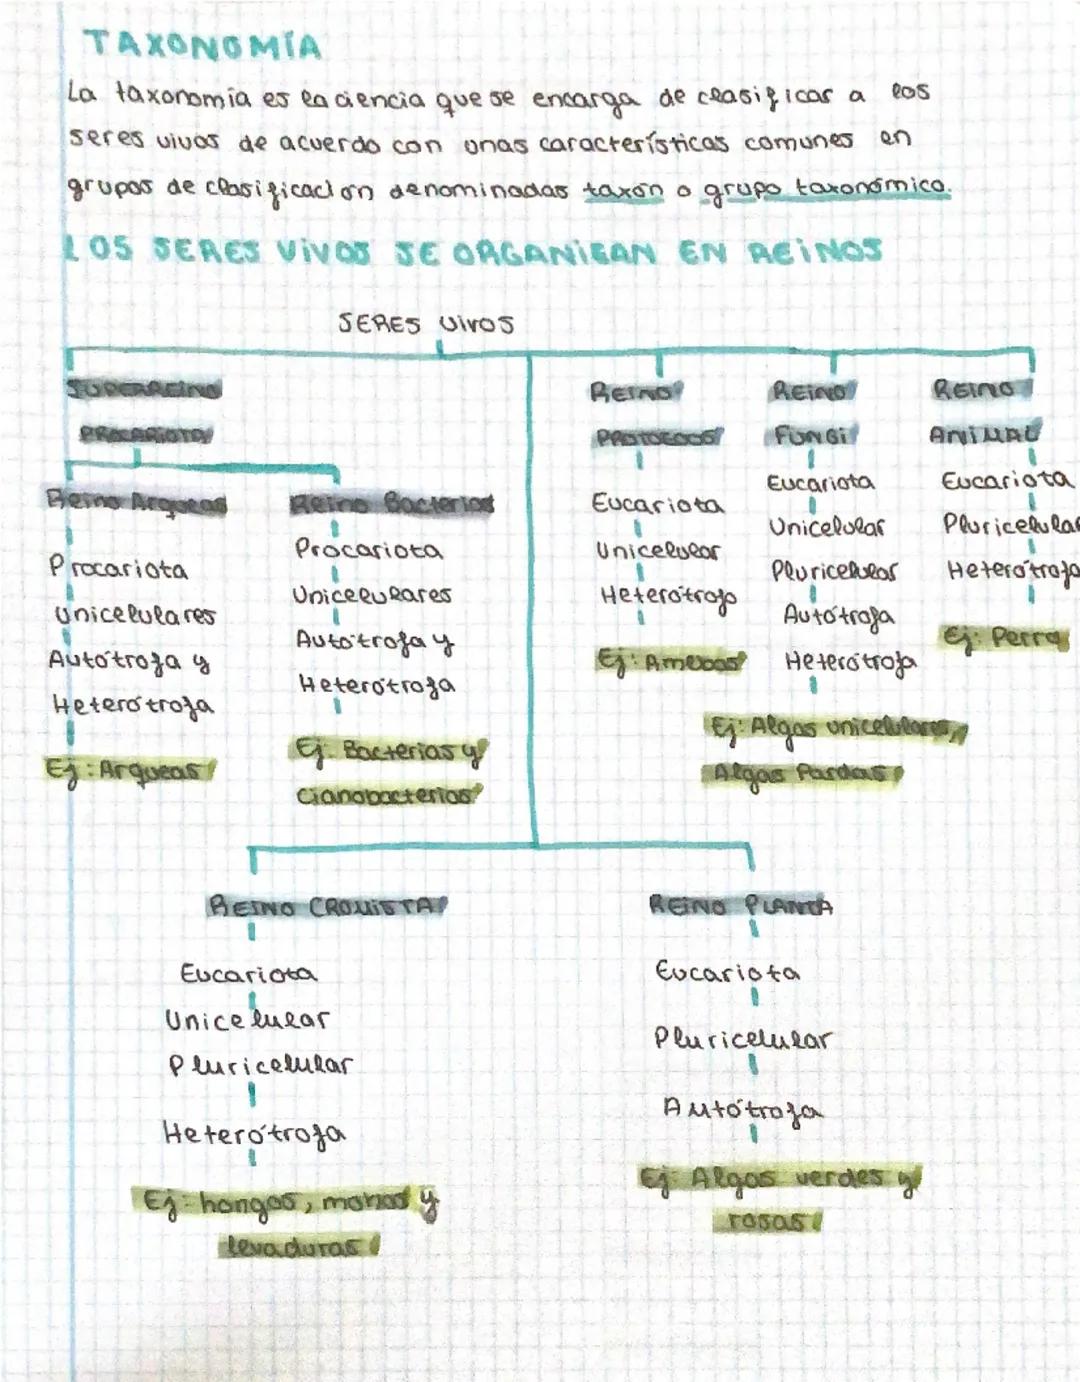 TAXONOMÍA
La taxonomía es la ciencia que se encarga de clasificar a los
seres vivos de acuerdo con unas características comunes en
grupos de clasificación denominados taxón o grupo taxonómico.
LOS SERES VIVOS SE ORGANIZAN EN REINOS
SERES VIVOS
SUPERREINO
PROCARIOTA
Reino Arqueas
Procariota
Unicelulares
Autótrofa y
Heterótrofa
Ej: Arqueas
Reino Bacterias
Procariota
Unicelulares
Autótrofa y
Heterótrofa
Ej: Bacterias y
cianobacterias
REINO
PROTOZOOS
Eucariota
Unicelular
Heterótrofo
Ej: Amebas
REINO
FUNGI
Eucariota
Unicelular
Pluricelular
Autótrofa
Heterótrofa
Ej: Algas unicelulares,
Algas Pardas
REINO
ANIMAL
Eucariota
Pluricelular
Heterótrofa
Ej: Perro
REINO CROMISTA
Eucariota
Unicelular
Pluricelular
Heterótrofa
Ej: hongos, mohos y
levaduras
REINO PLANTA
Eucariota
Pluricelular
Autótrofa
Ej: Algas verdes y
rosas